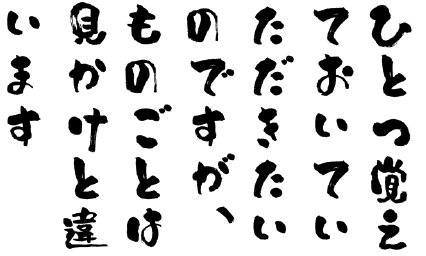 ひとつ覚え
ておいてい
ただきたい
のですが、
ものごとは
見かけと違
います